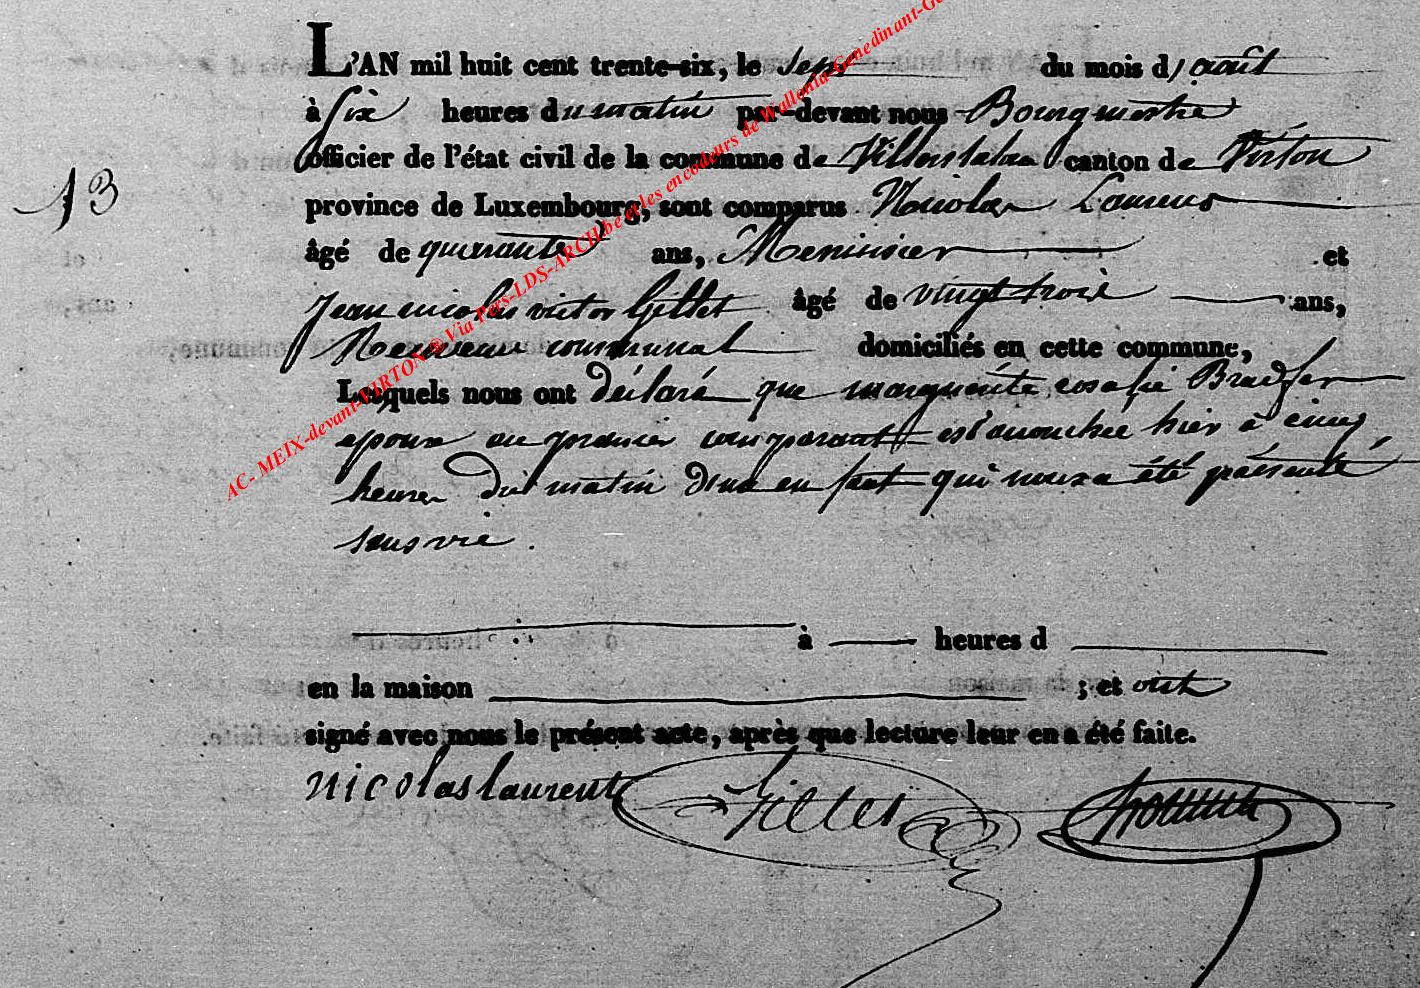 L'AN mil huit cent trente-six, le sept du mois d'août
à six heures du matin par-devant nous Bourgmestre
officier de l'état civil de la commune de Villerslaloue canton de Virton
13
province de Luxembourg, sont comparus Nicolas Laurens
âgé de quarante ans, Menisier et
Jean nicolas victor Gillet âgé de vingt trois ans,
Receveur communal domiciliés en cette commune,
Lesquels nous ont déclaré que marguerite rosalie Bradfer
epouse au premier comparant est acouchee hier à cinq
heures du matin d'un enfant qui nous a été présenté
sans vie.
à heures d
en la maison ; et ont
signé avec nous le présent acte, après que lecture leur en a été faite.
nicolas laurent Gillet
AC- MEIX-devant-VIRTON @ Via Pers-LDS-ARCH.be et les encodeurs de Wallonia-Genedinant-Ge